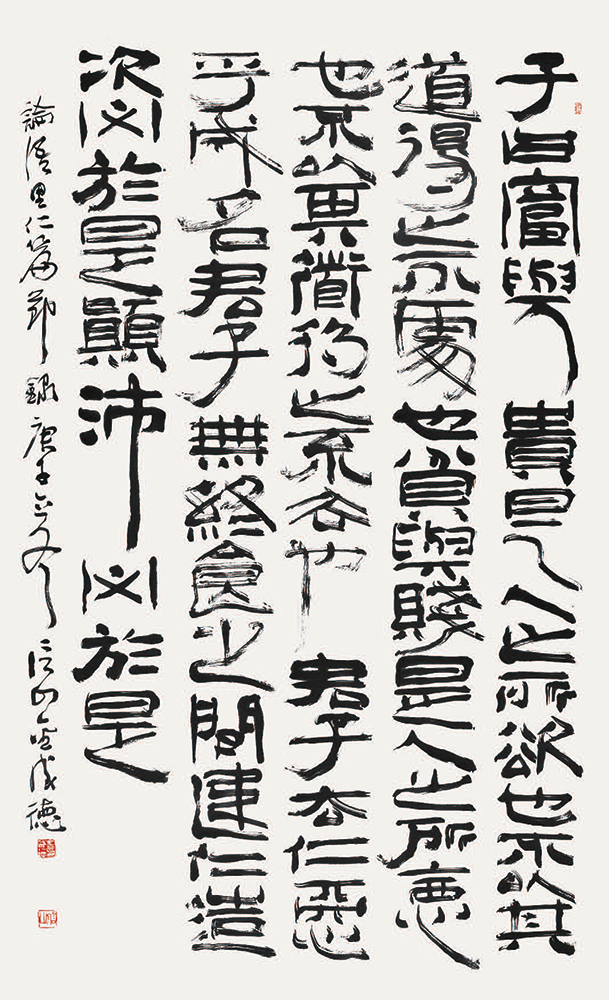 子曰富與貴是人之所欲也不以其
道得之不處也貧與賤是人之所惡
也不以其道得之不去也君子去仁惡
乎成名君子無終食之間違仁造
次必於是顛沛必於是
論語里仁篇節錄庚子 成德